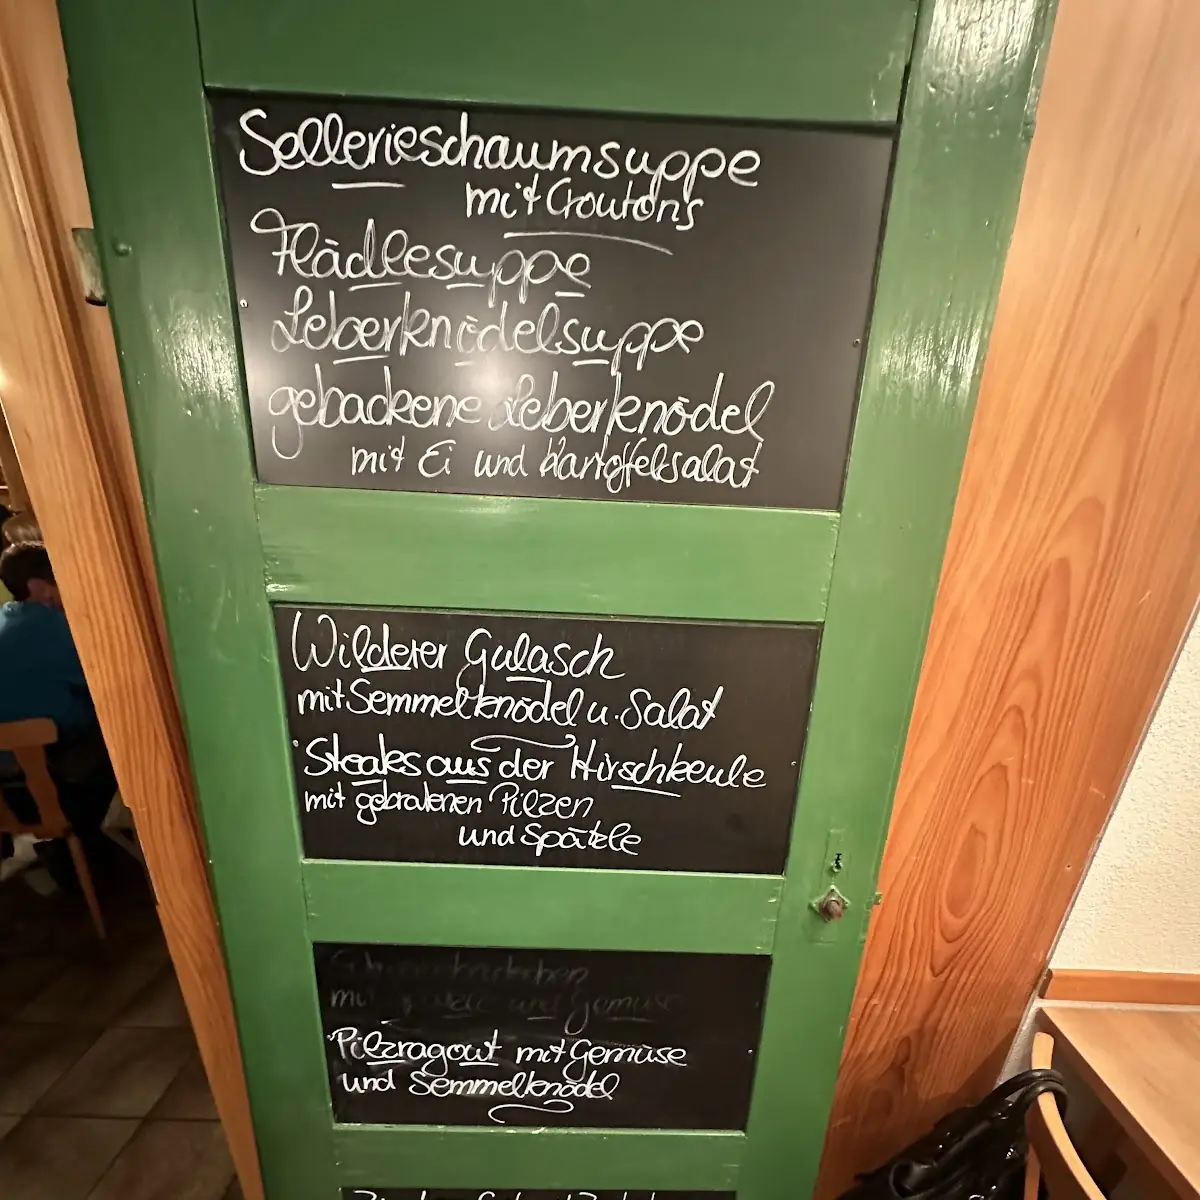 Sellerieschaumsuppe
mit Croutons
Flädlesuppe
Leberknödelsuppe
gebackene Leberknödel
mit Ei und Kartoffelsalat
Wilderer Gulasch
mit Semmelknödel u. Salat
Steaks aus der Hirschkeule
mit gebratenen Pilzen
und Spätzle
mit und Gemüse
Pilzragout mit Gemüse
und Semmelknödel